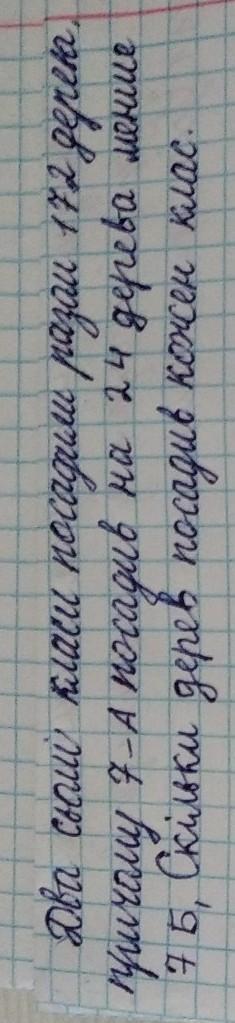 Два сьомі класи посадили разом 172 дерева,
причому 7-А посадив на 24 дерева менше
7Б, Скільки дерев посадив кожен клас.